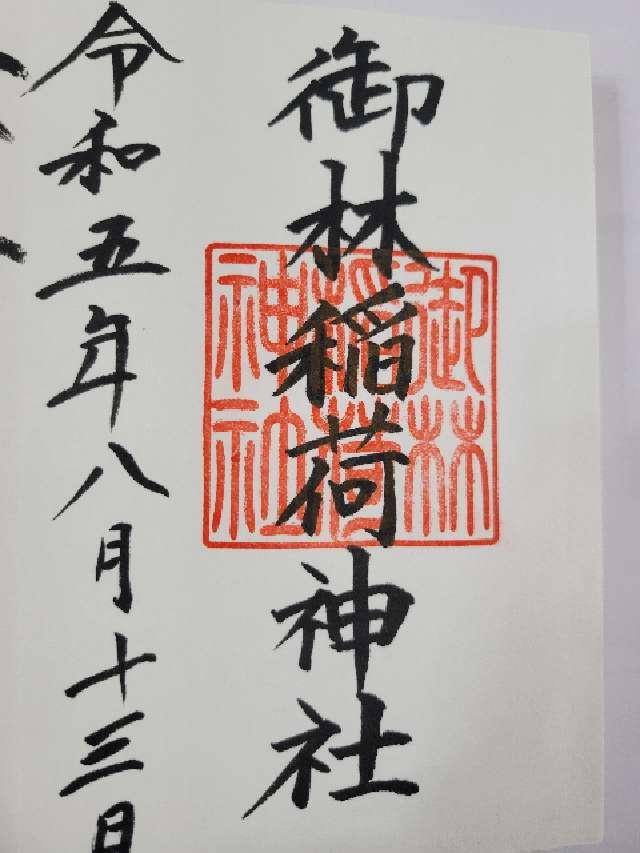 御林稲荷神社
御林
稲荷
神社
令和五年八月十三日